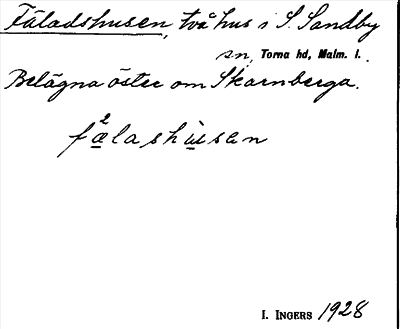 Fäladshusen, två hus i S. Sandby
sn, Torna hd, Malm. l.
Belägna öster om Skarnberga.
fæ²lashùsan
I. INGERS 1928